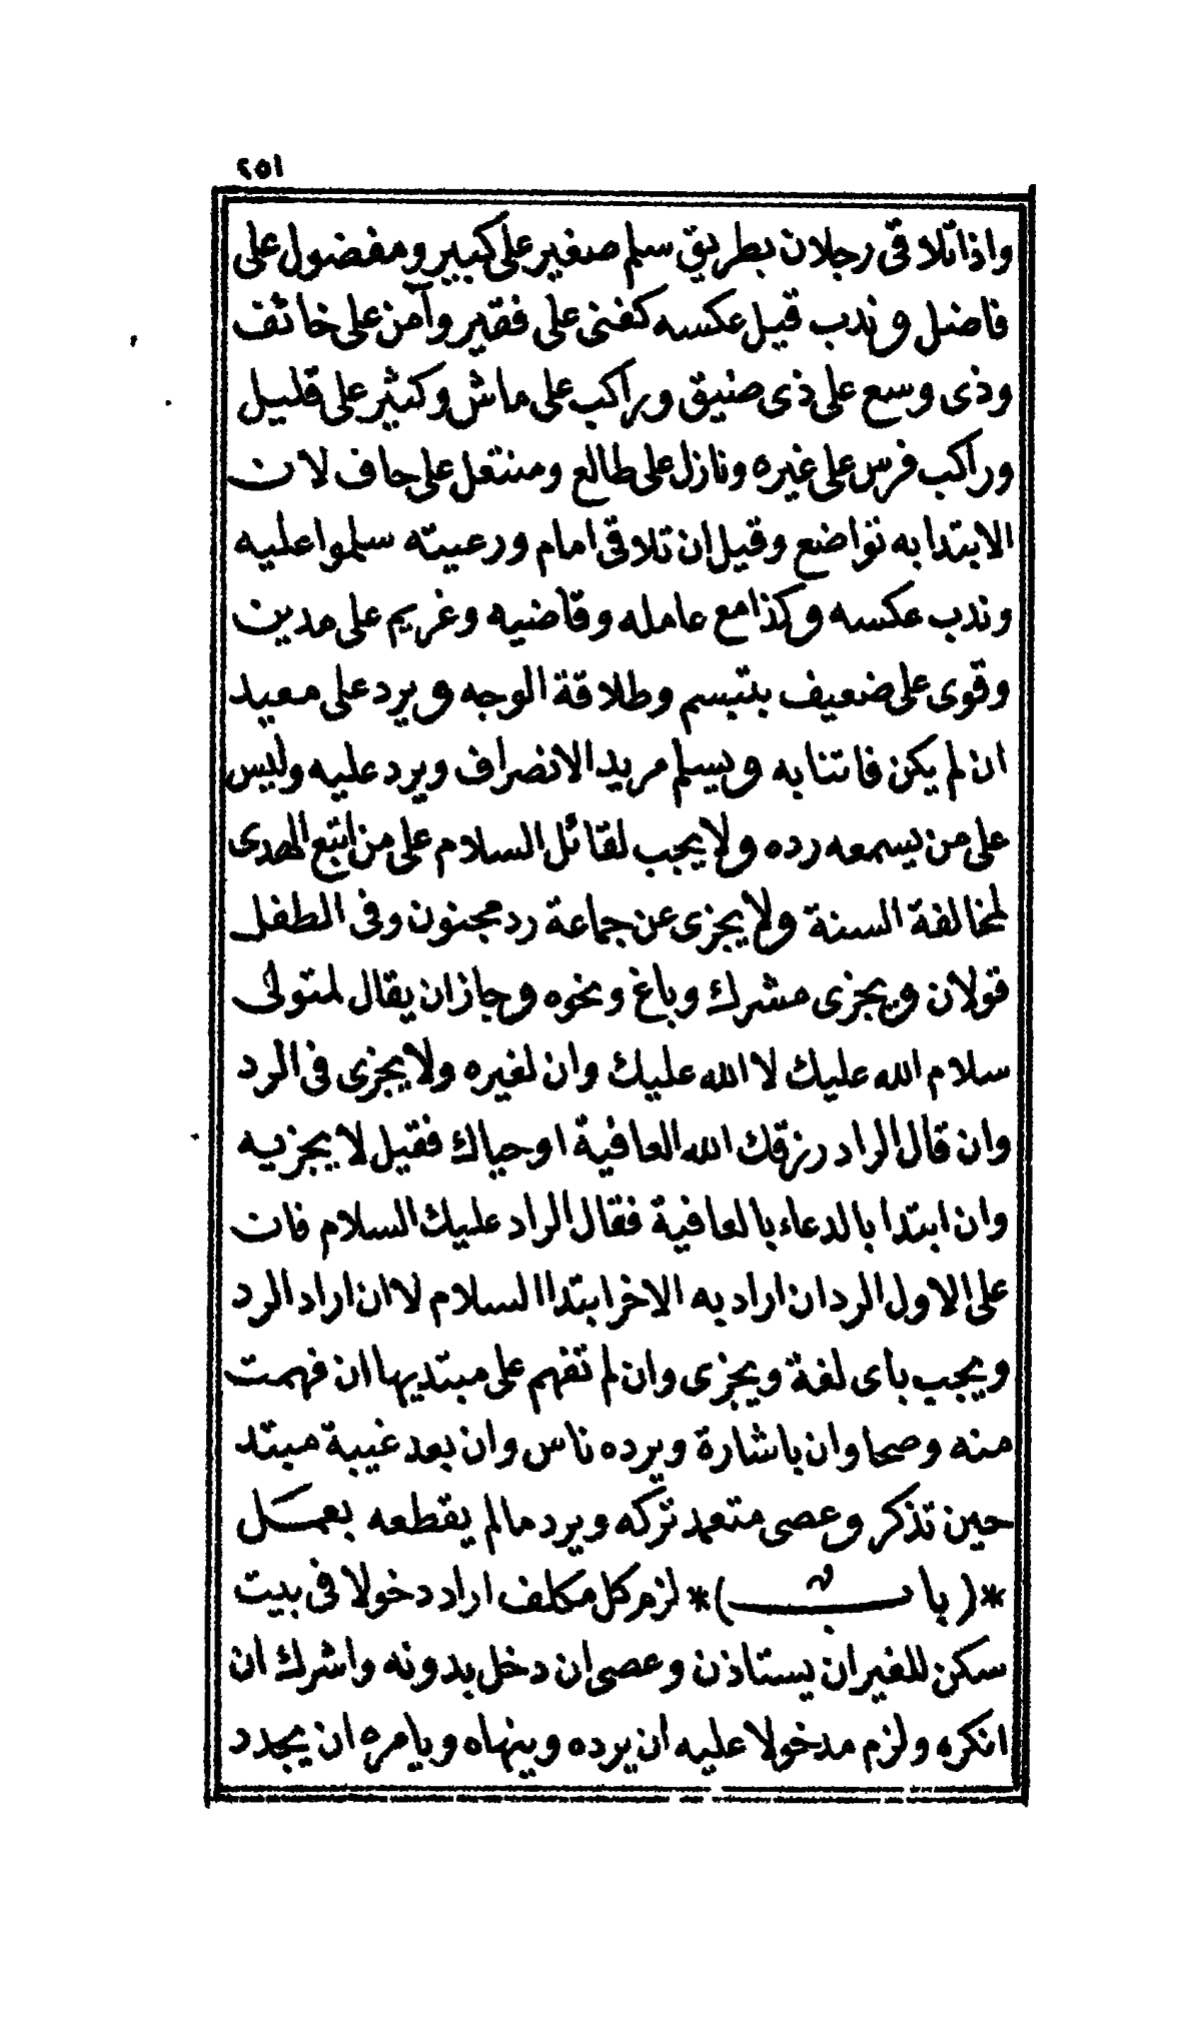 ٢٥١
واذا تلاقى رجلان بطريق سلم صغير على كبير ومفضول على
فاضل وندب قيل عكسه كغنى على فقير وآمن على خائف
وذى وسع على ذى ضيق وراكب على ماش وكثير على قليل
وراكب فرس على غيره ونازل على طالع ومنتعل على حاف لان
الابتدا به تواضع وقيل ان تلاقى امام ورعيته سلموا عليه
وندب عكسه وكذا مع عامله وقاضيه وغريم على مدين
وقوى على ضعيف بتبسم وطلاقة الوجه ويرد على معيد
ان لم يكن فاتنا به ويسلم مريد الانصراف ويرد عليه وليس
على من يسمعه رده ولا يجب لقائل السلام على من اتبع الهدى
لمخالفة السنة ولا يجزى عن جماعة رد مجنون وفى الطفل
قولان ويجزى مشرك وباغ ونحوه وجاز ان يقال لمتولى
سلام الله عليك لا الله عليك وان لغيره ولا يجزى فى الرد
وان قال الراد رزقك الله العافية او حياك فقيل لا يجزيه
وان ابتدا بالدعاء بالعافية فقال الراد عليك السلام فان
على الاول الرد ان اراد به الاخر ابتدا السلام لا ان اراد الرد
ويجب باى لغة ويجزى وان لم تفهم على مبتديها ان فهمت
منه وصحا وان باشارة ويرده ناس وان بعد غيبة مبتد
حين تذكر وعصى متعمد تركه ويرد مالم يقطعه بعمل
*(باب)* لزم كل مكلف اراد دخولا فى بيت
سكن للغير ان يستاذن وعصى ان دخل بدونه واشرك ان
انكره ولزم مدخولا عليه ان يرده وينهاه ويامره ان يجدد